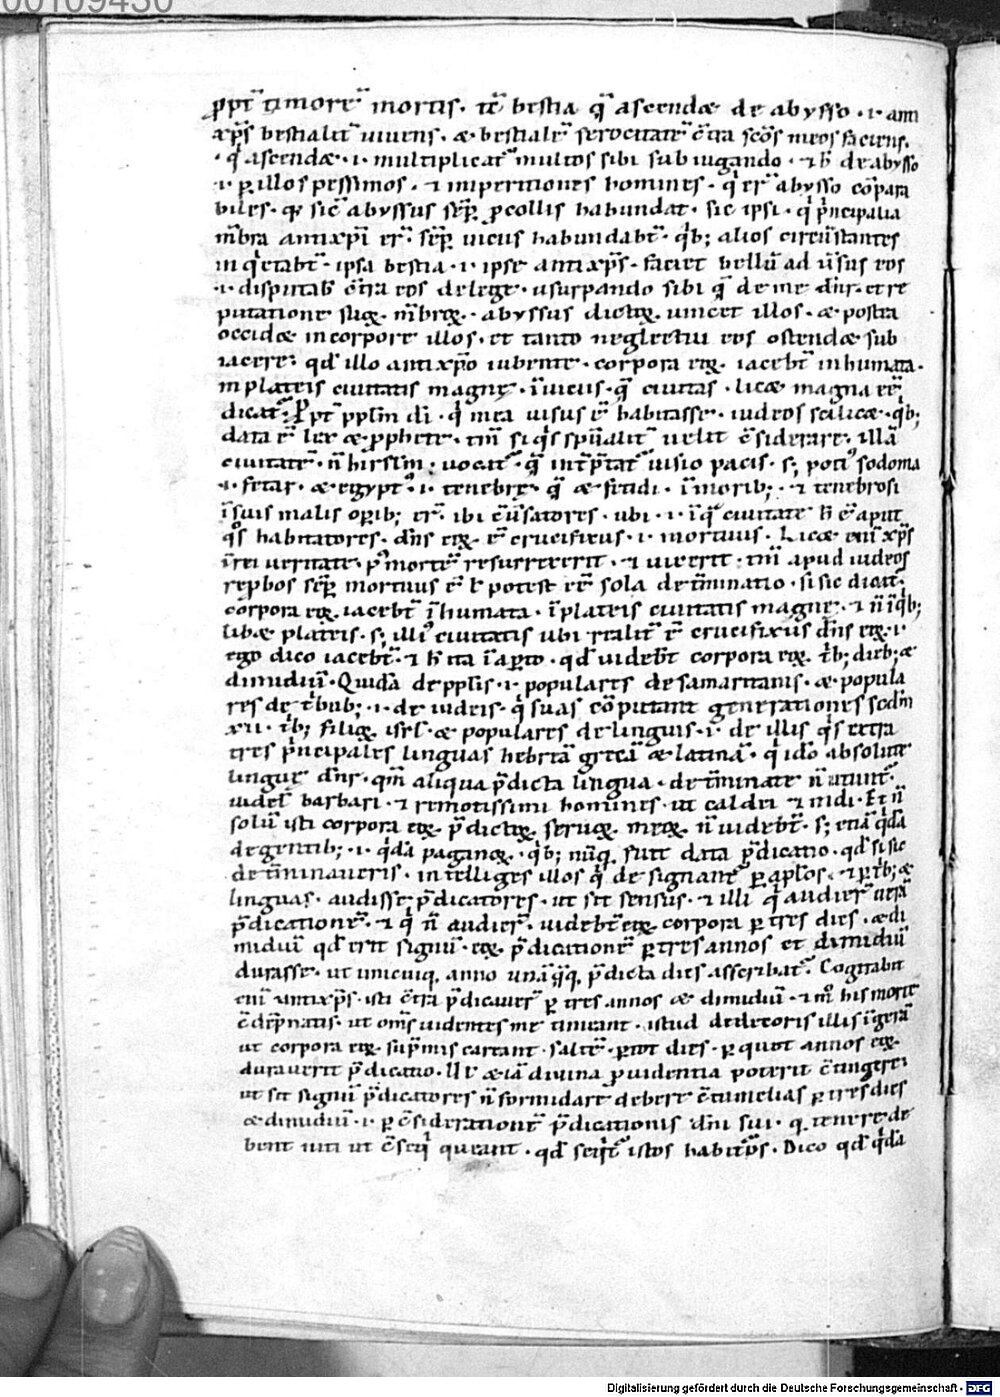 00109430
ꝓpt̄ timorē mortis · tc̄ bestia q̄ ascendæ de abysso · i · anti
xp̄s bestialit̄ uiuens · æ bestialē ferocitatē c̄tra sc̄os meos faciens ·
· q̄ ascendæ · i · multiplicat̄ multos sibi subiugando · ⁊ h̄ de abysso
· i · ꝑ illos pessimos · ⁊ imperitiores homines · q̄ er̄ abysso cōpara
biles · qr̄ sic̄ abyssus sēp ꝓcellis habundat · sic ipsi · q̄ pͥncipalia
m̄bra antixp̄i er̄ · sēp uiciis habundabt̄ · qͥb; alios circūstantes
inqͥetabt̄ · ipsa bestia · i · ipse antixp̄s · faciet bellū aduͥsus eos
· i · disputab̄ c̄tra eos de lege · usurpando sibi q̄ de me dn̄r · et re
putatione suaꝝ m̄broꝝ · abyssus dictaꝝ uincet illos · æ postea
occidæ in corpore illos · et tanto neglectui eos ostendæ sub
iacere · qd̄ illo antixp̄o iubente · corpora eoꝝ iacebt̄ inhumata ·
in plateis ciuitatis magnę · ī uicis · q̄ ciuitas · licæ magna ee
dicat̄ · ꝓpt̄ pplm̄ di · qͥ mea uisus ē habitasse · iudeos scilicæ · qͥb;
data ē lex æ ꝓphete · tm̄ si qͥs spūalit̄ uelit c̄siderare · illā
ciuitatē · n̄ hirslm̄ · uocat̄ · q̄ int̄p̄tat̄ uisio pacis · s; potiꝰ sodoma
· i · fetax · æ egyptꝰ · i · tenebrę · q̄ æ fetidi · ī morib; · ⁊ tenebrosi
ī suis malis opib; er̄ · ibi c̄uersatores · ubi · i · ī q̄ ciuitate h̄ c̄ aput
qͦs habitatores · dn̄s eoꝝ ē crucifixus · i · mortuus · Licæ eni xp̄s
ī rei ueritate · pꝰ mortē resurrexerit · ⁊ uixerit · tm̄ apud iudeos
rephos sēp mortuus ē ł potest eē sola det̄minatio · si sic dicat̄
corpora eoꝝ iacebt̄ ī humata · ī plateis ciuitatis magnę · ⁊ n̄ ī qͥb;
libæ plateis · s; illiꝰ ciuitatis ubi realit̄ ē crucifixus dn̄s eoꝝ · i ·
ego dico iacebt̄ · ⁊ h̄ ita ī apto · qd̄ uidebt̄ corpora eoꝝ · tͥb; dieb; æ
dimidiū · Quida de pplis · i · populares de samaritanis · æ popula
res de tͥbub; · i · de iudeis · qͥ suas cōputant generationes scdm̄
xii · tͥb; filioꝝ isrl̄ · æ populares de linguis · i · de illis qͥs extra
tres pͥncipales linguas hebreā grecā æ latinā · qͥ ido absolute
linguę dn̄r · qm̄ aliqua p̄dicta lingua · det̄minate n̄ utunt̄ ·
uidel̄ barbari · ⁊ remotissimi homines · ut caldei ⁊ indi · Et n̄
solū isti corpora eoꝝ p̄dictoꝝ seruoꝝ meoꝝ n̄ uidebt̄ · s; etiā qͥda
de gentib; · i · qͥda paganoꝝ · qͥb; nūq̄ fuit data p̄dicatio · qd̄ si sic
det̄minaueris · intelliges illos q̄ designant̄ ꝑ aplos · ⁊ ꝑ tͥb; æ
linguas · audisse p̄dicatores · ut sit sensus · ⁊ illi qͥ audier̄ uerā
p̄dicationē · ⁊ qͥ n̄ audier̄ uidebt̄ eoꝝ corpora ꝑ tres dies · æ di
midiū qd̄ erit signū · eoꝝ p̄dicationē ꝑ tres annos et dimidiū
durasse · ut unicuiq; anno una q̄q; p̄dicta dies asscribat̄ · Cogitabit
eni antixp̄s · isti c̄tra p̄dicauer̄ ꝑ tres annos æ dimidiū · ⁊ iō his morte
ut oms uidentes me timeant · istud dedecoris illis īgerā
ut corpora eoꝝ sup̄mis careant · saltē · ꝑ tot dies · ꝑ quot annos eoꝝ
durauerit p̄dicatio · Vł æ ia diuina ꝓuidentia poterit c̄tingere ·
ut sit signū p̄dicatores n̄ formidare debere c̄tumelias ꝑ tres dies
æ dimidiū · i · ꝑ c̄siderationē p̄dicationis dn̄i sui · q̄ tenere de
bent niti ut c̄seqͥ queant · qd̄ seqͥt̄ istos · Dico qd̄ qͥda
Digitalisierung gefördert durch die Deutsche Forschungsgemeinschaft · DFG